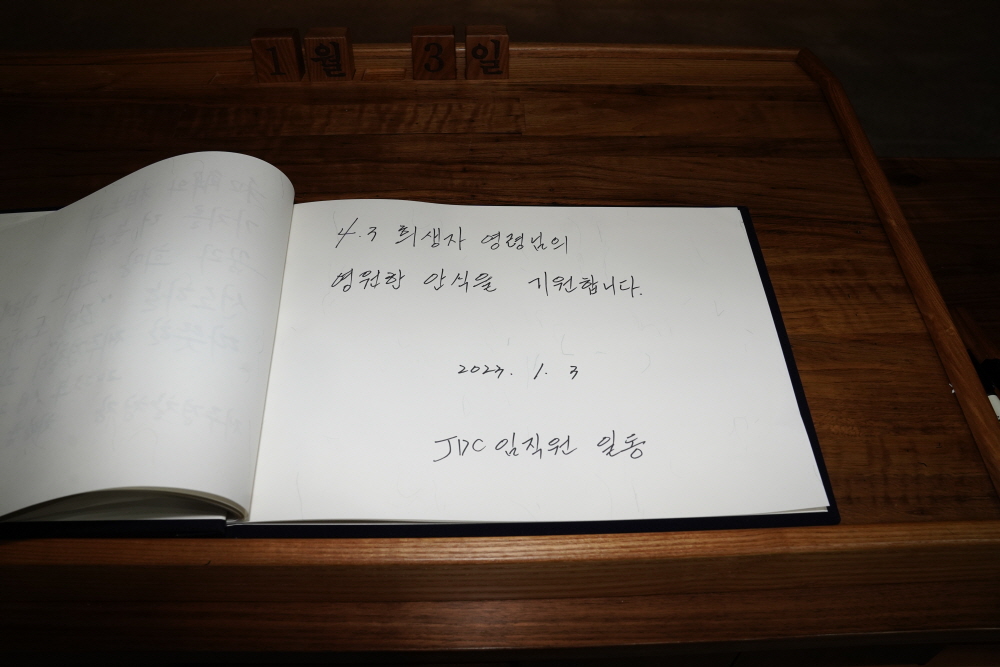 1월 3일
4.3 희생자 영령님의
영원한 안식을 기원합니다.
2023. 1. 3
JDC 임직원 일동